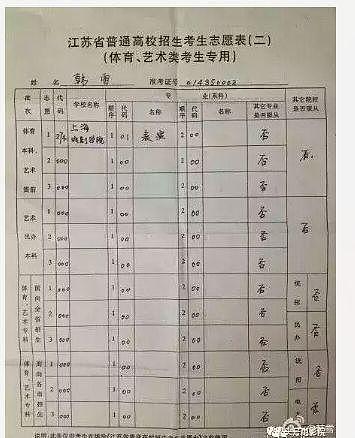 江苏省普通高校招生考生志愿表(二)
(体育、艺术类考生专用)
姓 名 韩雪 准考证号
批次 志愿 代码 学校名称 专 业(系科) 其它专业是否服从 其它院校是否服从
顺序 代码 名称 顺序 代码 名称
体育本科、艺术提前 1 上海戏剧学院 1 01 表演 2 00 否 否
2 000 1 00 2 00 否
3 000 1 00 2 00 否
艺术民办本科 1 000 1 00 2 00 否 否
2 000 1 00 2 00 否
3 000 1 00 2 00 否
体育、艺术专科 面向全省招生 1 000 1 00 2 00 否 统招 否
2 000 1 00 2 00 否
3 000 1 00 2 00 否 民办 否
体育、艺术专科 1 000 1 00 2 00 否
2 000 1 00 2 00 否
3 000 1 00 2 00 否